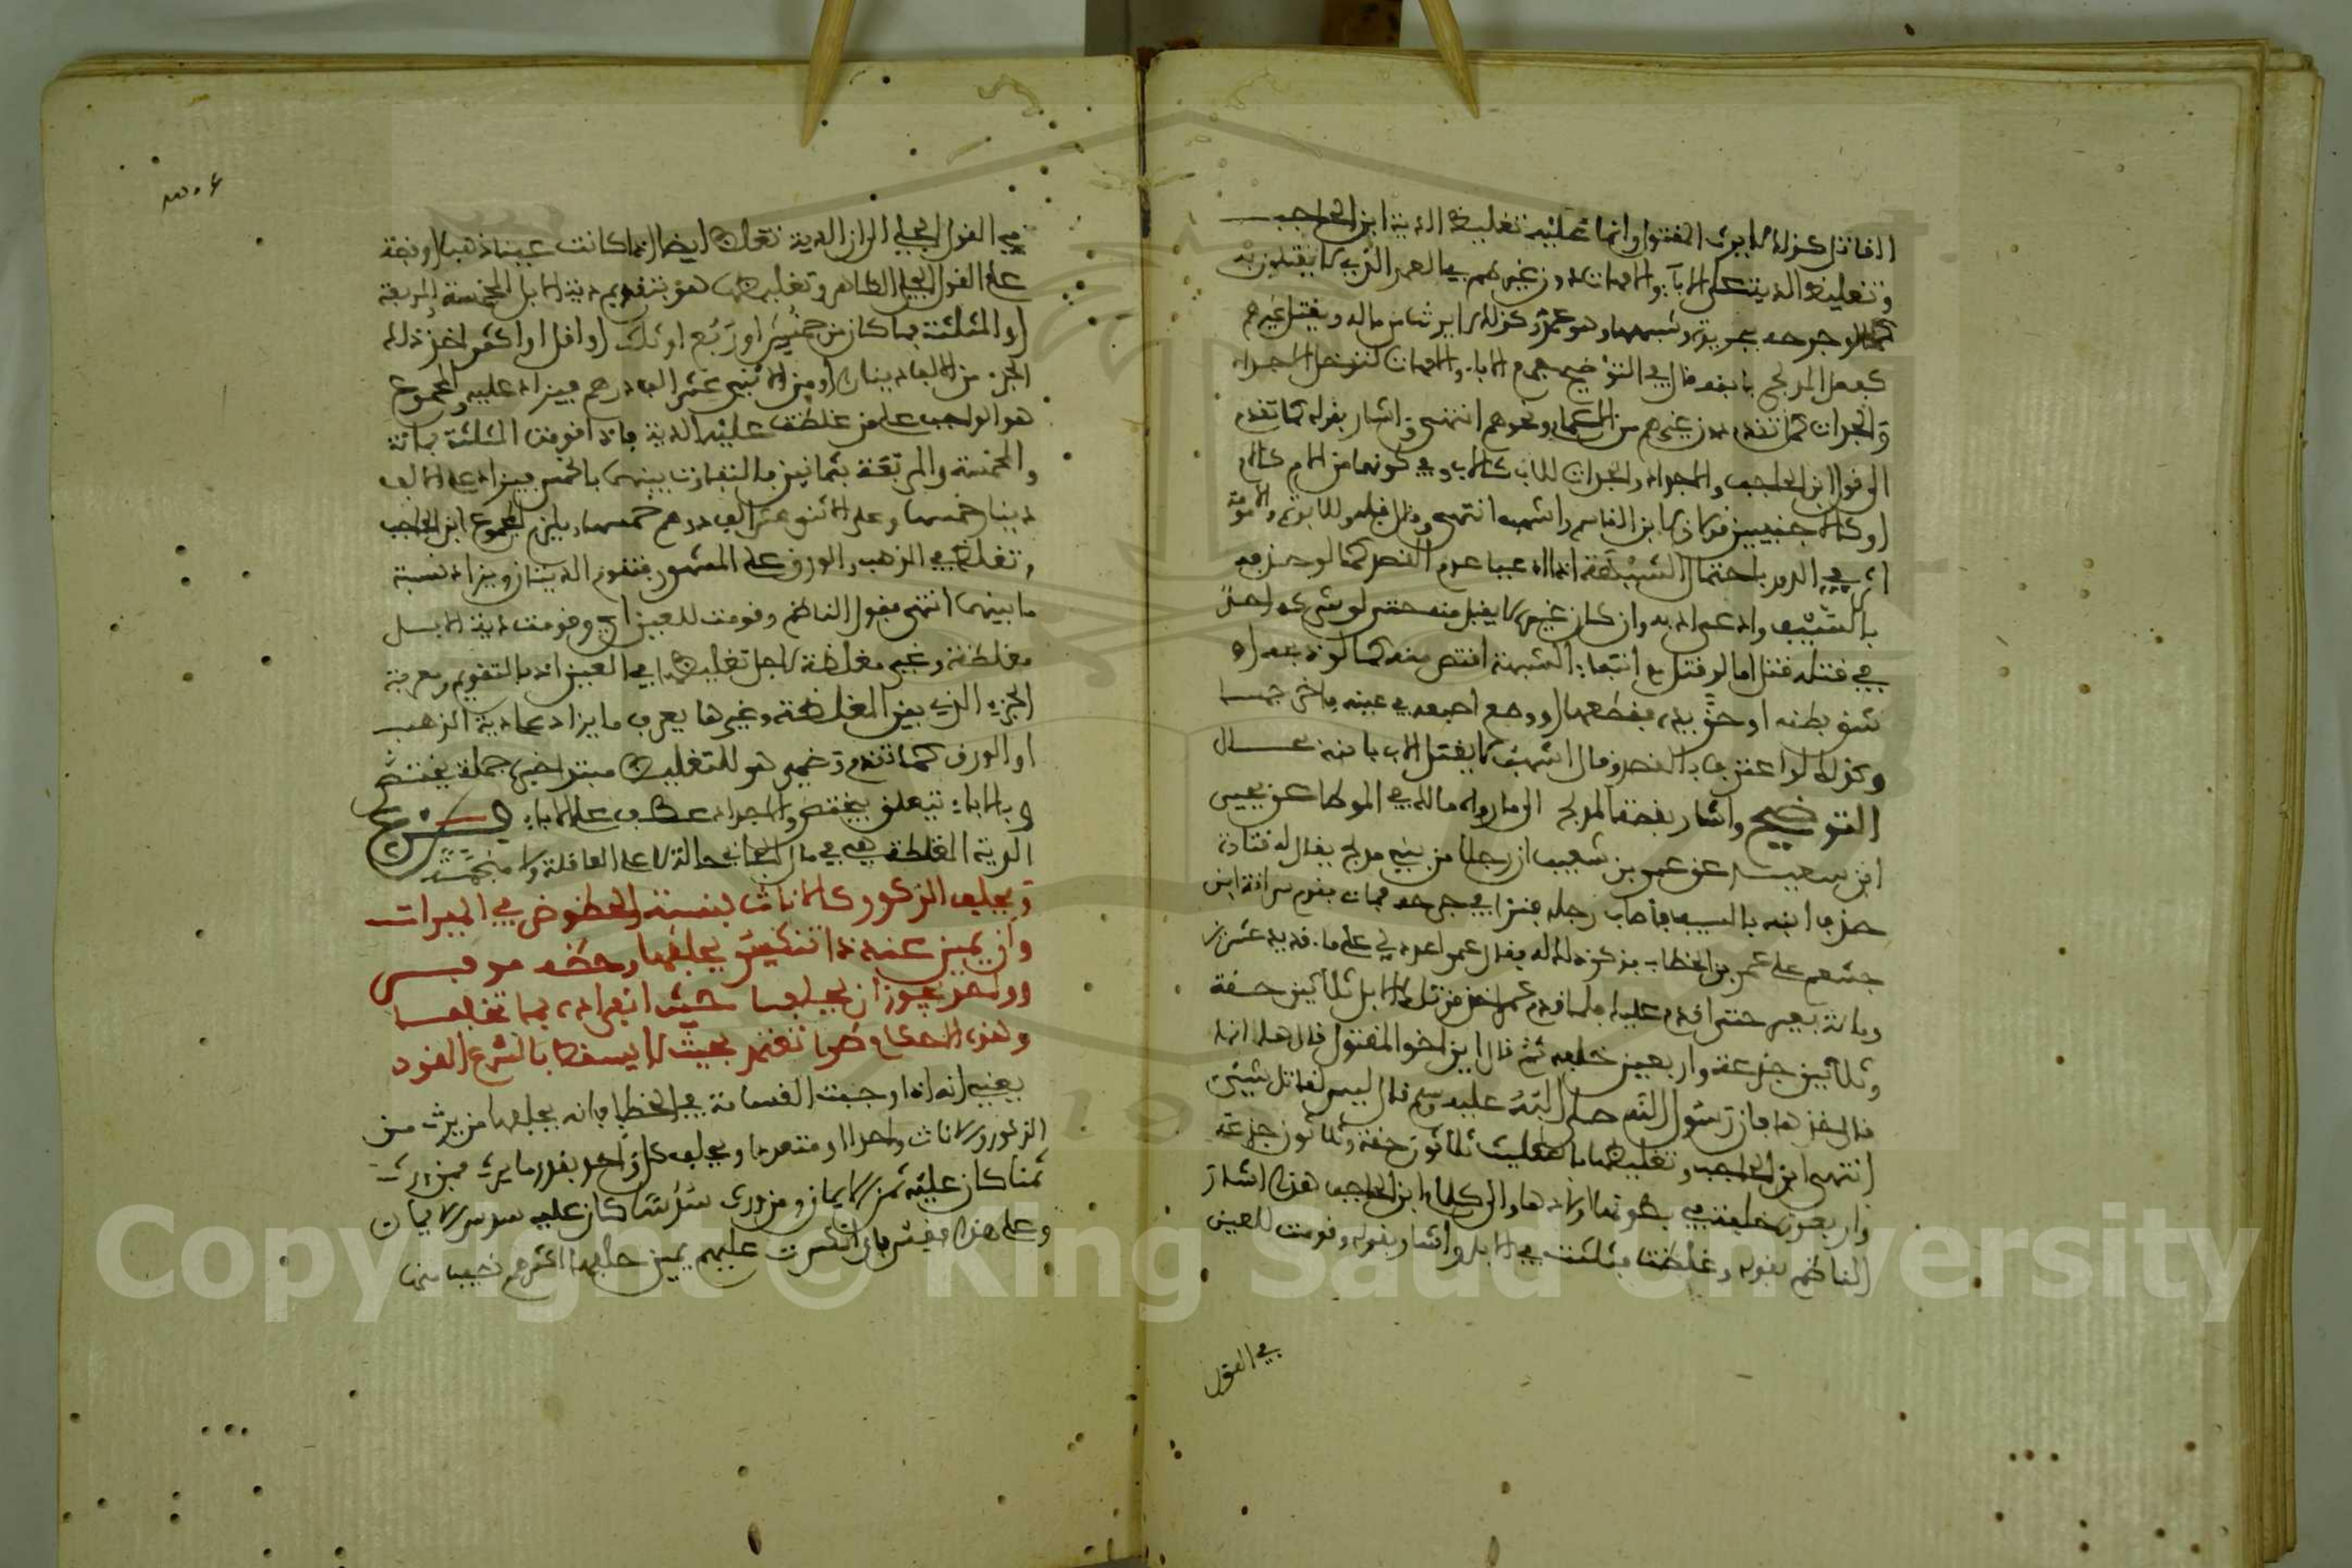 القاتل كذلك لا يرث المقتول وانما عليه تغليظ الدية ابن الحاجب
وتغليظ الدية على الاباء والامهات دون غيرهم في العمد الذي لا يقتلون به
كما لو جرحه بحديدة وشبهها وهو عمد وكذلك لا يرث من ماله ويقتل غيرهم
كفعل المدلجي بابنه قال في التوضيح جميع الاباء والامهات لتدخل الاجداد
والجدات كما تقدم دون غيرهم من الاعمام ونحوهم انتهى واشار بقوله كما تقدم
الى قول ابن الحاجب والاجداد والجدات للاب كالاب وفي كونهما من الام كالام
او كالاجنبيين قولان لابن القاسم واشهب انتهى وقال قبله وللابوة والامومة
اثر في الدرء باحتمال الشبهة اذا ادعيا عدم القصد كما لو حذفه
بالسيف وادعى ادبه وان كان غيره لا يقبل منه حتى لو شركه احد
في قتله قتل اما لو قتل مع انتفاء الشبهة اقتص منه كما لو ذبحه او
شق بطنه او حز يده فقطعها او وضع اصبعه في عينه فاخرجها
وكذلك لو اعترف بالقصد وقال اشهب لا يقتل الاب بابنه بحال
التوضيح واشار بقصة المدلجي الى ما رواه مالك في الموطا عن يحيى
ابن سعيد عن عمرو بن شعيب ان رجلا من بني مدلج يقال له قتادة
حذف ابنه بالسيف فاصاب رجله فنزا في جرحه فمات فقدم سراقة ابن
جشعم على عمر بن الخطاب فذكر ذلك له فقال عمر اعدد لي على ماء قديد عشرين
ومائة بعير حتى اقدم عليك فلما قدم عمر اخذ من تلك الابل ثلاثين حقة
وثلاثين جذعة واربعين خلفة ثم قال اين اخو المقتول قال هانذا
قال خذها فان رسول الله صلى الله عليه وسلم قال ليس لقاتل شيء
انتهى ابن الحاجب وتغليظها بالتثليث ثلاثون حقة وثلاثون جذعة
واربعون خلفة في بطونها اولادها والى كلام ابن الحاجب هذا اشار
الناظم بقوله وغلظت فثلثت في الابل واشار بقوله وقومت للعين
في القول
في القول الجلي الى ان الدية تغلظ ايضا اذا كانت عينا ذهبا او فضة
على القول الجلي الظاهر وتغليظها هو بتقويم دية الابل المخمسة او المربعة
او المثلثة فما كان من خمس او ربع او ثلث او اقل او اكثر اخذ ذلك
الجزء من الالف دينار او من الاثني عشر الف درهم فيزاد عليه والمجموع
هو الواجب على من غلظت عليه الدية فاذا قومت المثلثة بمائة
والمخمسة والمربعة بثمانين فالتفاوت بينهما بالخمس فيزاد على الالف
دينار خمسها وعلى الاثني عشر الف درهم خمسها ويلزم المجموع ابن الحاجب
وتغلظ في الذهب والورق على المشهور فتقوم الديتان ويزاد نسبة
ما بينهما انتهى فقول الناظم وقومت للعين اي وقومت دية الابل
مغلظة وغير مغلظة لاجل تغليظها في العين اذ بالتقويم ومعرفة
الجزء الذي بين المغلظة وغيرها يعرف ما يزاد على دية الذهب
او الورق كما تقدم وضمير هو للتغليظ مبتدا خبره جملة يختص
وبالاباء يتعلق بيختص والاجداد عطف على الاباء الشرح
الدية المغلظة هي في مال الجاني حالة لا على العاقلة ولا منجمة
ويحلف الذكور كالاناث بنسبة الحظوظ في الميراث
وان يمين عنه ذا تنكسر يحلفها وحظه موفر
وواحد يجوز ان يحلفها حيث انفراده بما تخلفها
وهذه الاحكام طرا تعتمد بحيث لا يسقط بالشرع القود
يعني انه اذا وجبت القسامة في الخطا فانه يحلفها من يرث من
الذكور والاناث واحدا او متعددا ويحلف كل واحد بقدر ما يرث فمن ورث
ثمنا كان عليه ثمن الايمان ومن ورث سدسا كان عليه سدس الايمان
وعلى هذا فقس فان انكسرت عليهم يمين حلفها اكثرهم نصيبا منها